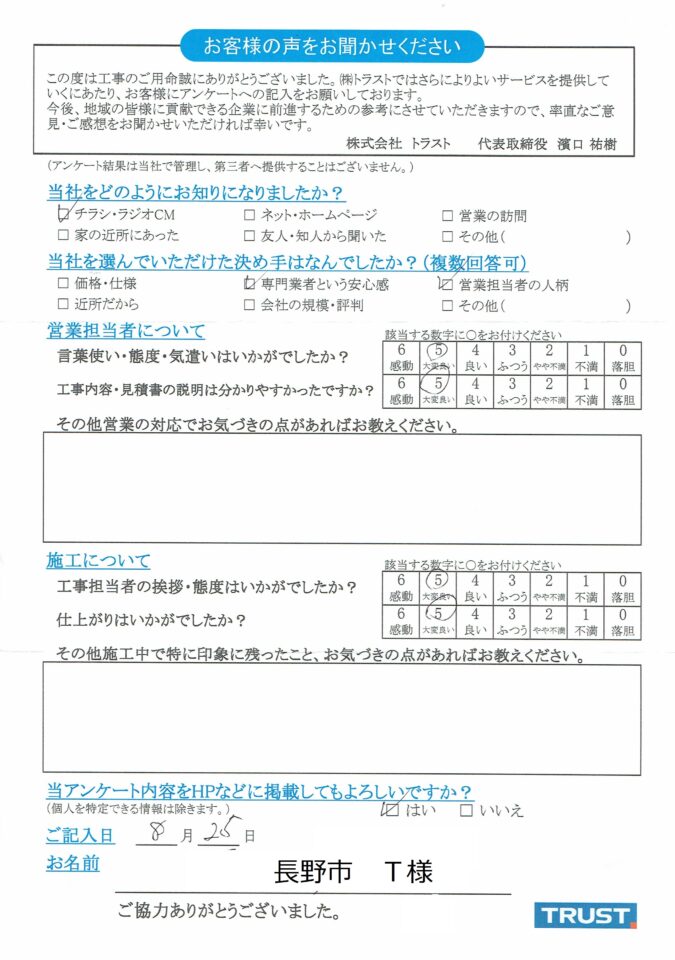 お客様の声をお聞かせください
この度は工事のご用命誠にありがとうございました。㈱トラストではさらによりよいサービスを提供して
いくにあたり、お客様にアンケートへの記入をお願いしております。
今後、地域の皆様に貢献できる企業に前進するための参考にさせていただきますので、率直なご意
見・ご感想をお聞かせいただければ幸いです。
株式会社 トラスト 代表取締役 濱口 祐樹
(アンケート結果は当社で管理し、第三者へ提供することはございません。)
当社をどのようにお知りになりましたか?
☑ チラシ・ラジオCM □ ネット・ホームページ □ 営業の訪問
□ 家の近所にあった □ 友人・知人から聞いた □ その他( )
当社を選んでいただけた決め手はなんでしたか?(複数回答可)
□ 価格・仕様 ☑ 専門業者という安心感 ☑ 営業担当者の人柄
□ 近所だから □ 会社の規模・評判 □ その他( )
営業担当者について 該当する数字に○をお付けください
言葉使い・態度・気遣いはいかがでしたか?
6 5 4 3 2 1 0
感動 大変良い 良い ふつう やや不満 不満 落胆
工事内容・見積書の説明は分かりやすかったですか?
6 5 4 3 2 1 0
感動 大変良い 良い ふつう やや不満 不満 落胆
その他営業の対応でお気づきの点があればお教えください。
施工について 該当する数字に○をお付けください
工事担当者の挨拶・態度はいかがでしたか?
6 5 4 3 2 1 0
感動 大変良い 良い ふつう やや不満 不満 落胆
仕上がりはいかがでしたか?
6 5 4 3 2 1 0
感動 大変良い 良い ふつう やや不満 不満 落胆
その他施工中で特に印象に残ったこと、お気づきの点があればお教えください。
当アンケート内容をHPなどに掲載してもよろしいですか?
(個人を特定できる情報は除きます。) ☑ はい □ いいえ
ご記入日 8 月 25 日
お名前 長野市 T様
ご協力ありがとうございました。
TRUST.